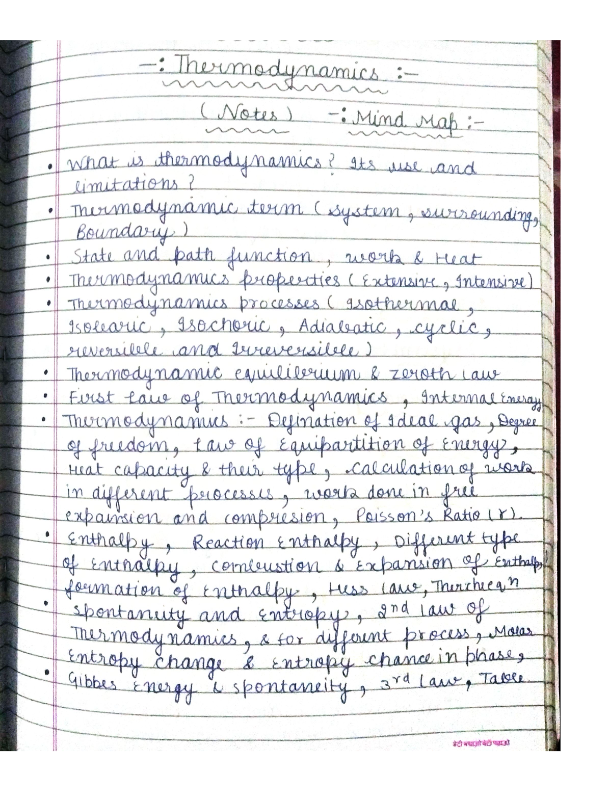 -: Thermodynamics :-
(Notes) -: Mind Map :-
• What is thermodynamics? Its use and
limitations?
• Thermodynamic term (system, surrounding,
Boundary)
• State and path function, work & Heat
• Thermodynamics properties (Extensive, Intensive)
• Thermodynamics processes (Isothermal,
Isobaric, Isochoric, Adiabatic, cyclic,
reversible and Irreversible)
• Thermodynamic equilibrium & zeroth law
• First law of Thermodynamics, Internal Energy
• Thermodynamics :- Defination of Ideal gas, Degree
of freedom, law of Equipartition of Energy,
Heat capacity & their type, calculation of work
in different processes, work done in free
expansion and compresion, Poisson's Ratio (γ).
• Enthalpy, Reaction Enthalpy, Different type
of Enthalpy, combustion & Expansion of Enthalpy
formation of Enthalpy, Hess law,
• spontanuity and Entropy, 2nd law of
Thermodynamics, & for different process, Molar
Entropy change & Entropy chance in phase,
• Gibbes Energy & spontaneity, 3rd law, Table
बेटी बचाओ बेटी पढ़ाओ